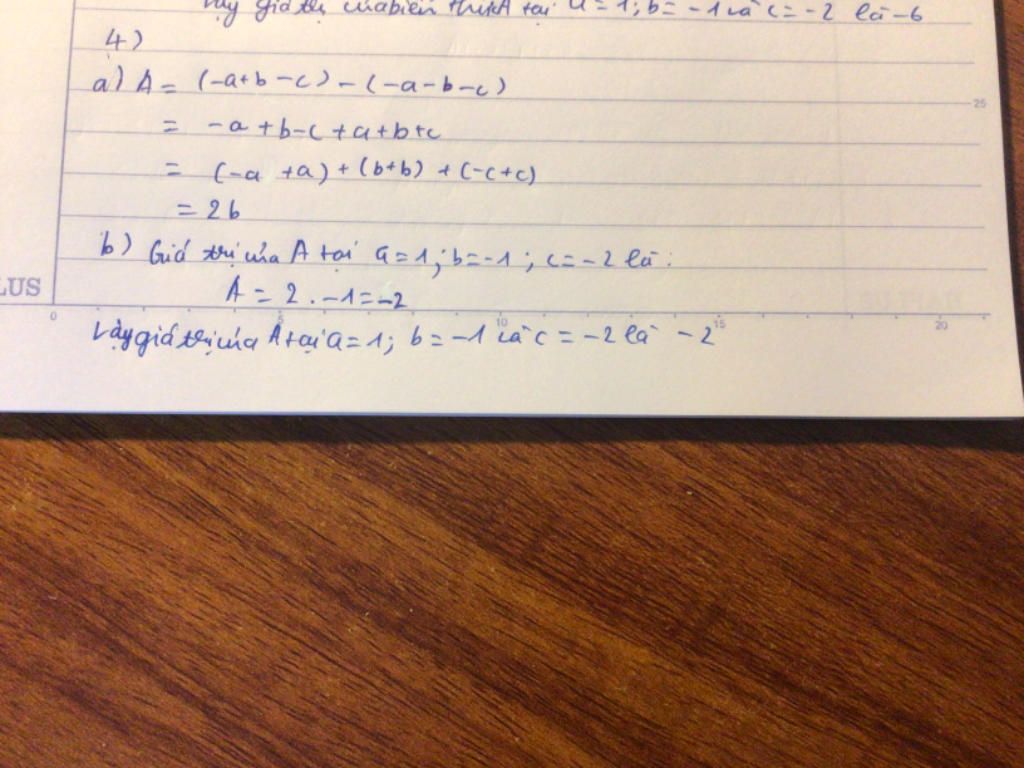 Vậy giá trị của biến thức A tại a = 1; b = -1 và c = -2 là -6
4)
a) A = (-a+b-c) - (-a-b-c)
= -a+b-c+a+b+c
= (-a +a) + (b+b) + (-c+c)
= 2b
b) Giá trị của A tại a=1; b=-1; c=-2 là:
A = 2 . -1 = -2
Vậy giá trị của A tại a=1; b=-1 và c=-2 là -2
LUS
25
0 5 10 15 20